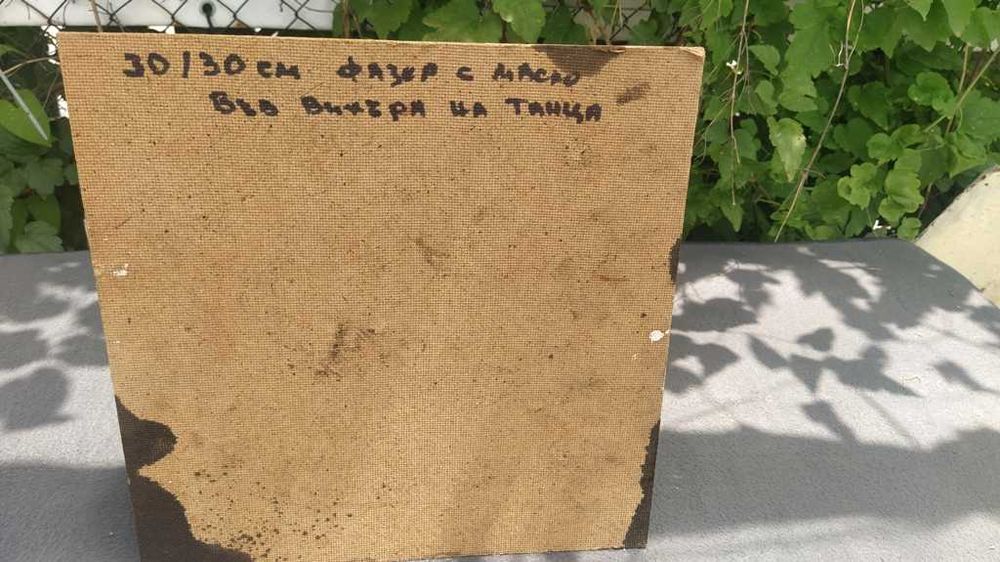 30/30 см фазер с масло
Във вихъра на танца